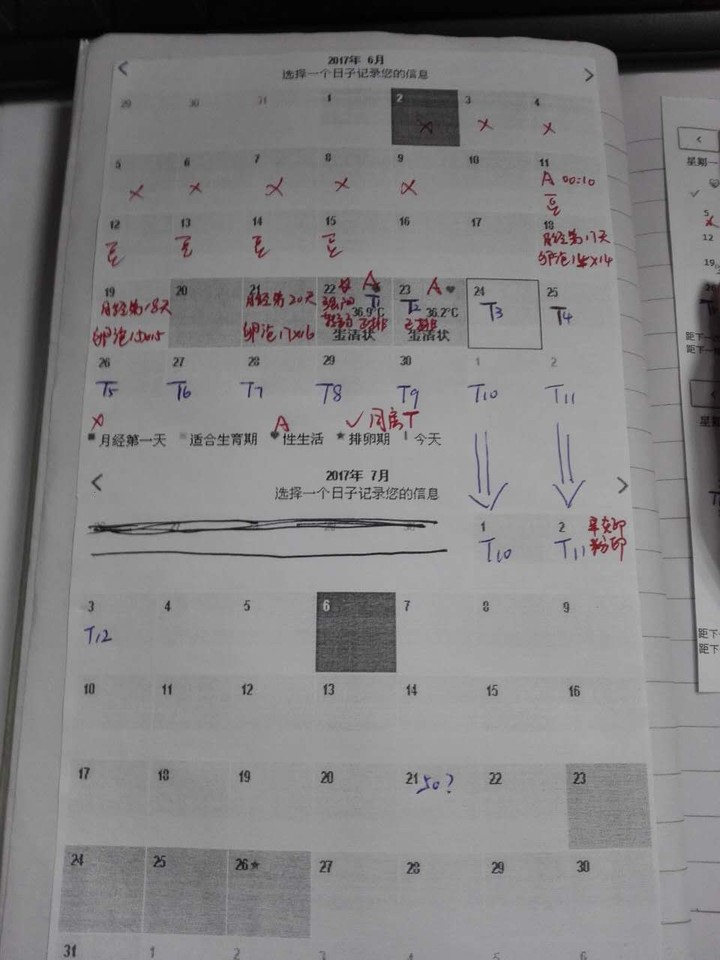 2017年 6月
选择一个日子记录您的信息
29 30 31 1 2 3 4
X X X
5 6 7 8 9 10 11
X X X X X A 00:10
12 13 14 15 16 17 18
月经第17天
19 20 21 22 23 24 25
月经第18天 月经第20天 A A
T1 T2 T3 T4
36.9°C 36.2°C
卵泡17x16 已排 已排
蛋清状 蛋清状
26 27 28 29 30 1 2
T5 T6 T7 T8 T9 T10 T11
X A ✓同房T
月经第一天 适合生育期 性生活 排卵期 今天
2017年 7月
选择一个日子记录您的信息
1 2
T10 T11
3 4 5 6 7 8 9
T12
10 11 12 13 14 15 16
17 18 19 20 21 50? 22 23
24 25 26 27 28 29 30
31 1 2 3 4 5 6
星期一
5
12
19
距下一
距下
距下